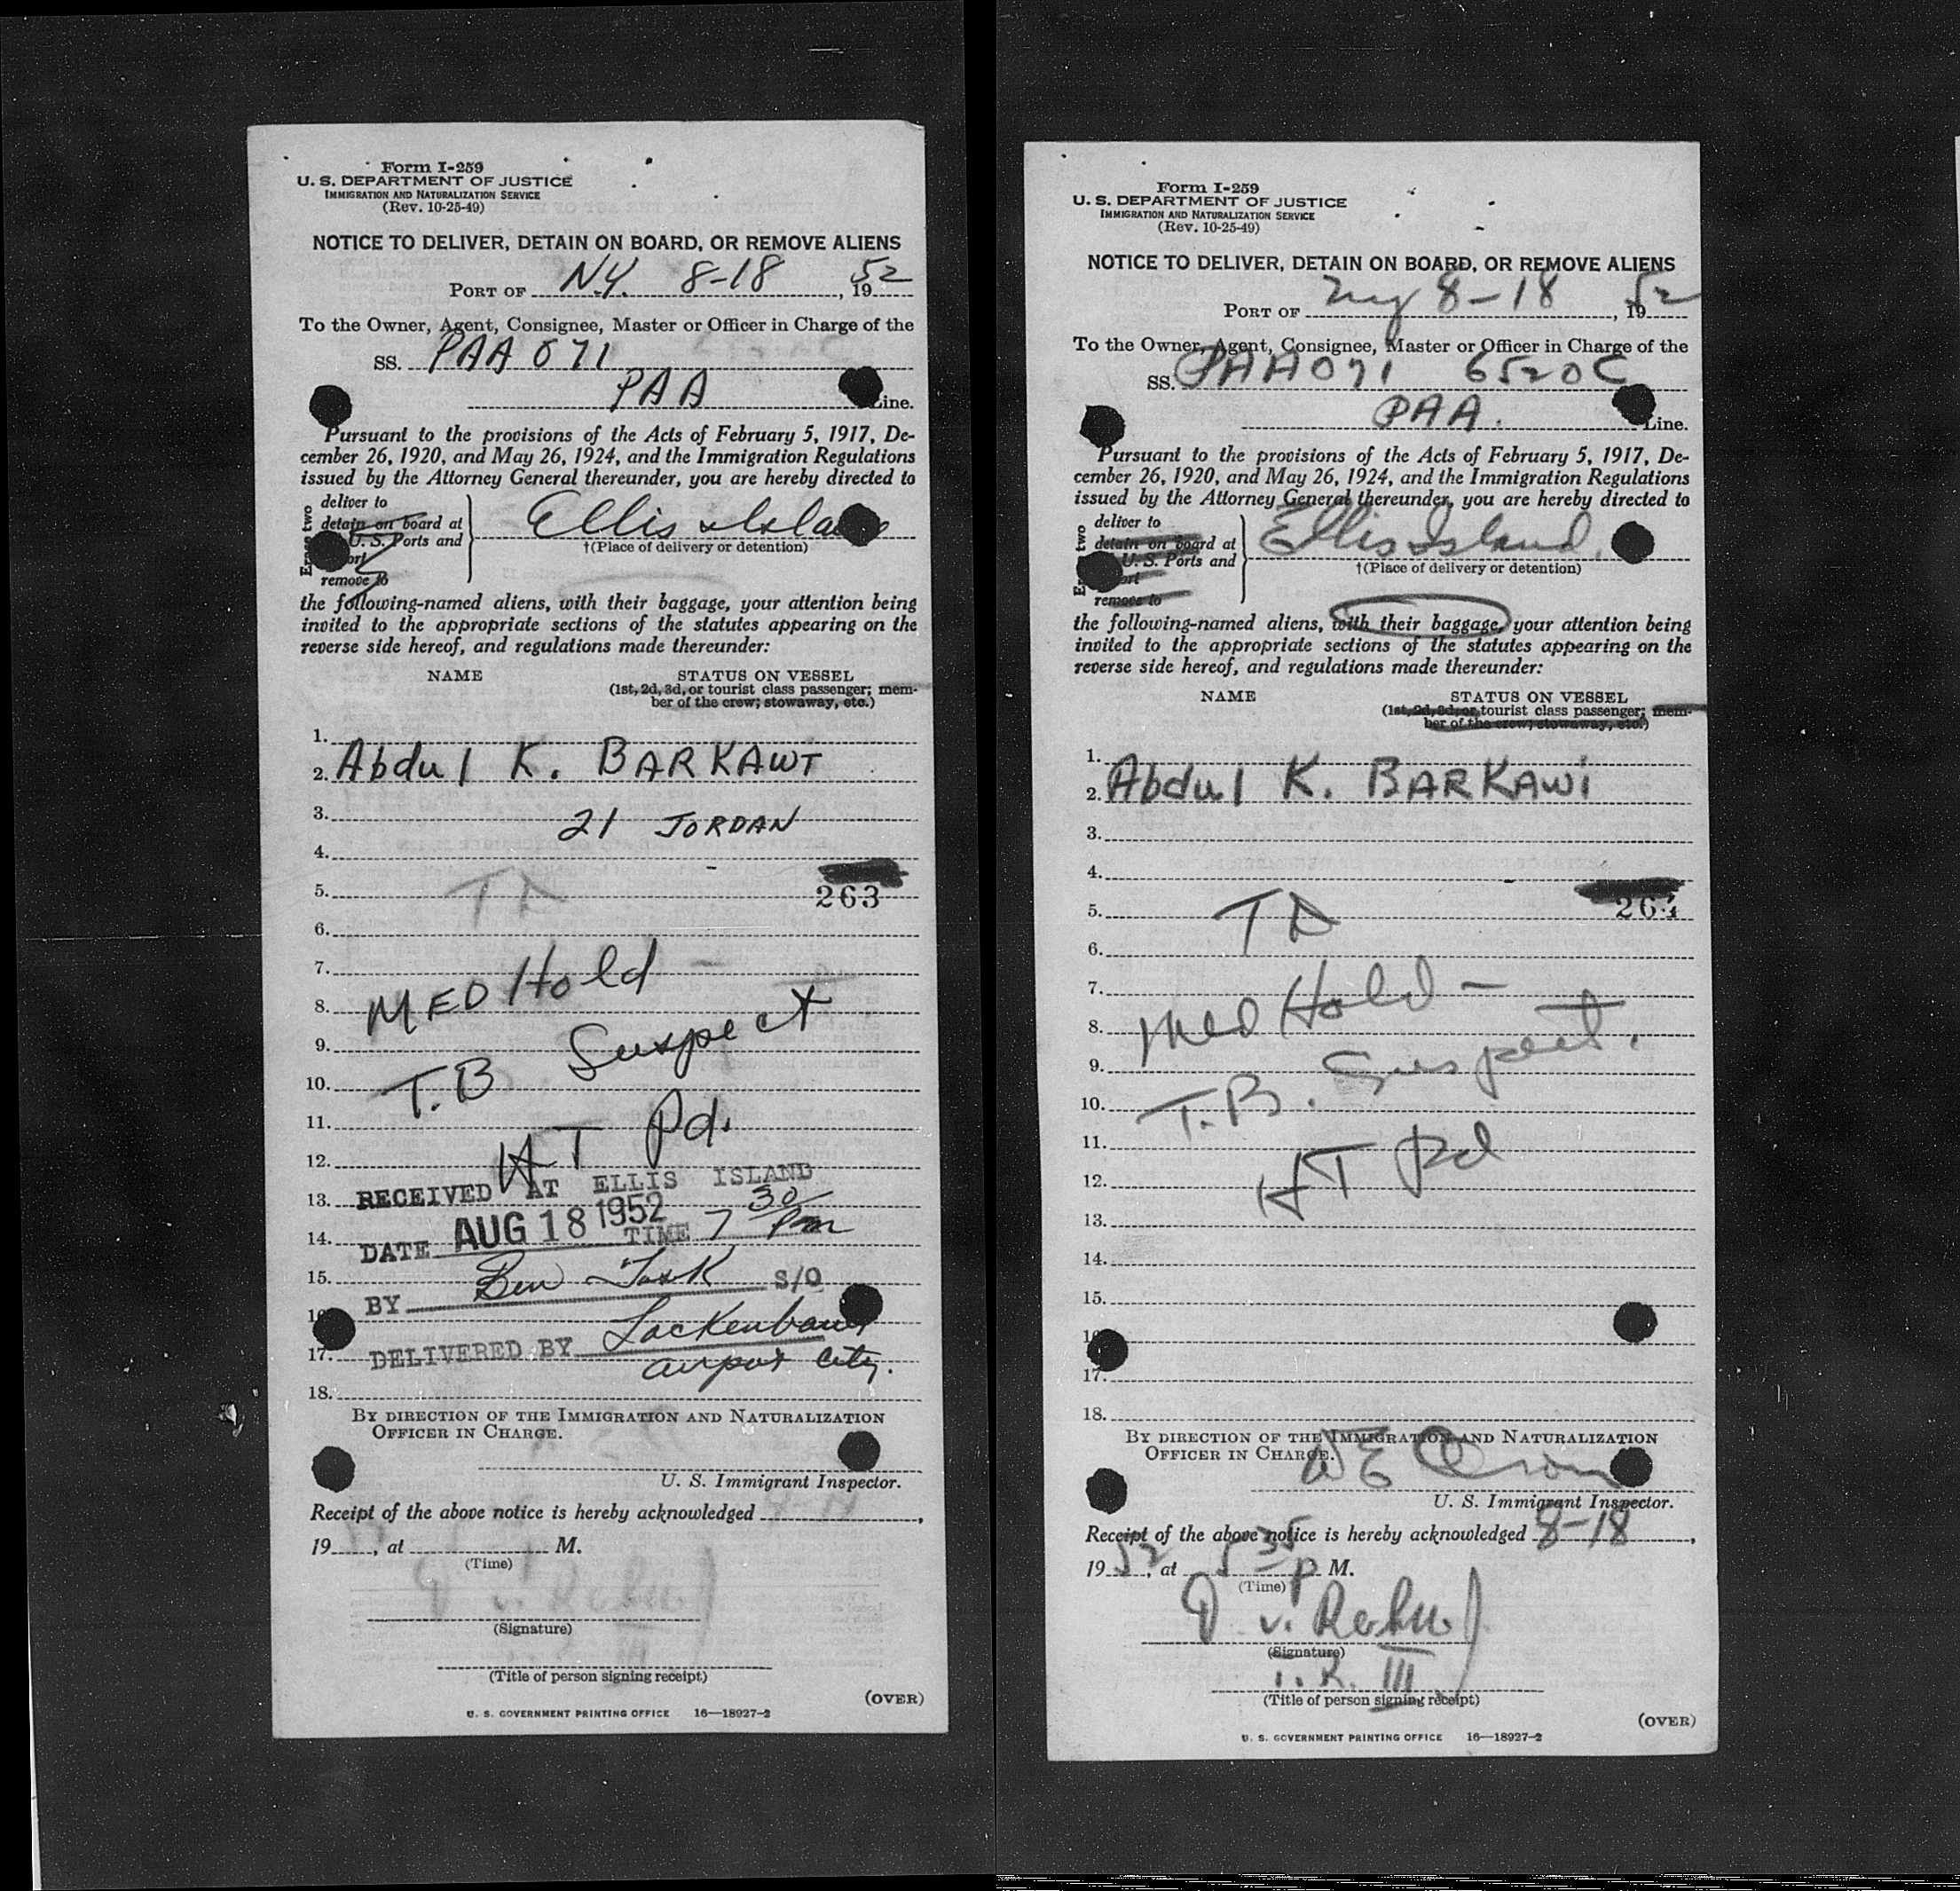 Form I-259
U. S. DEPARTMENT OF JUSTICE
IMMIGRATION AND NATURALIZATION SERVICE
(Rev. 10-25-49)
NOTICE TO DELIVER, DETAIN ON BOARD, OR REMOVE ALIENS
PORT OF N.Y. 8-18, 1952
To the Owner, Agent, Consignee, Master or Officer in Charge of the
SS. PAA 071
PAA Line.
Pursuant to the provisions of the Acts of February 5, 1917, De-
cember 26, 1920, and May 26, 1924, and the Immigration Regulations
issued by the Attorney General thereunder, you are hereby directed to
deliver to
detain on board at
U. S. Ports and
remove to
Ellis Island
†(Place of delivery or detention)
the following-named aliens, with their baggage, your attention being
invited to the appropriate sections of the statutes appearing on the
reverse side hereof, and regulations made thereunder:
NAME STATUS ON VESSEL
(1st, 2d, 3d, or tourist class passenger; mem-
ber of the crew; stowaway, etc.)
1.
2. Abdul K. BARKAWI
3. 21 JORDAN
4.
5. TD 263
6.
7.
8. MED Hold -
9. Suspect
10. T.B
11. Pd.
12. HT
13. RECEIVED AT ELLIS ISLAND
14. DATE AUG 18 1952 TIME 7 30 Pm
15. BY Ben S/O
16
17. DELIVERED BY
airport City.
18.
BY DIRECTION OF THE IMMIGRATION AND NATURALIZATION
OFFICER IN CHARGE.
U. S. Immigrant Inspector.
Receipt of the above notice is hereby acknowledged ,
19 , at M.
(Time)
(Signature)
(Title of person signing receipt)
(OVER)
U. S. GOVERNMENT PRINTING OFFICE 16—18927-2
Form I-259
U. S. DEPARTMENT OF JUSTICE
IMMIGRATION AND NATURALIZATION SERVICE
(Rev. 10-25-49)
NOTICE TO DELIVER, DETAIN ON BOARD, OR REMOVE ALIENS
PORT OF NY 8-18, 1952
To the Owner, Agent, Consignee, Master or Officer in Charge of the
SS. PAA 071 6520C
PAA. Line.
Pursuant to the provisions of the Acts of February 5, 1917, De-
cember 26, 1920, and May 26, 1924, and the Immigration Regulations
issued by the Attorney General thereunder, you are hereby directed to
deliver to
detain on board at
U. S. Ports and
remove to
Ellis Island.
†(Place of delivery or detention)
the following-named aliens, with their baggage, your attention being
invited to the appropriate sections of the statutes appearing on the
reverse side hereof, and regulations made thereunder:
NAME STATUS ON VESSEL
(1st, 2d, 3d, or tourist class passenger; mem-
ber of the crew; stowaway, etc.)
1.
2. Abdul K. BARKAWI
3.
4.
5. TD
6.
7.
8. Med Hold -
9. Suspect.
10. T.B.
11.
12. HT Pd
13.
14.
15.
16
17.
18.
BY DIRECTION OF THE IMMIGRATION AND NATURALIZATION
OFFICER IN CHARGE.
U. S. Immigrant Inspector.
Receipt of the above notice is hereby acknowledged 8-18,
1952, at 5 35 P M.
(Time)
(Signature)
III
(Title of person signing receipt)
(OVER)
U. S. GOVERNMENT PRINTING OFFICE 16—18927-2